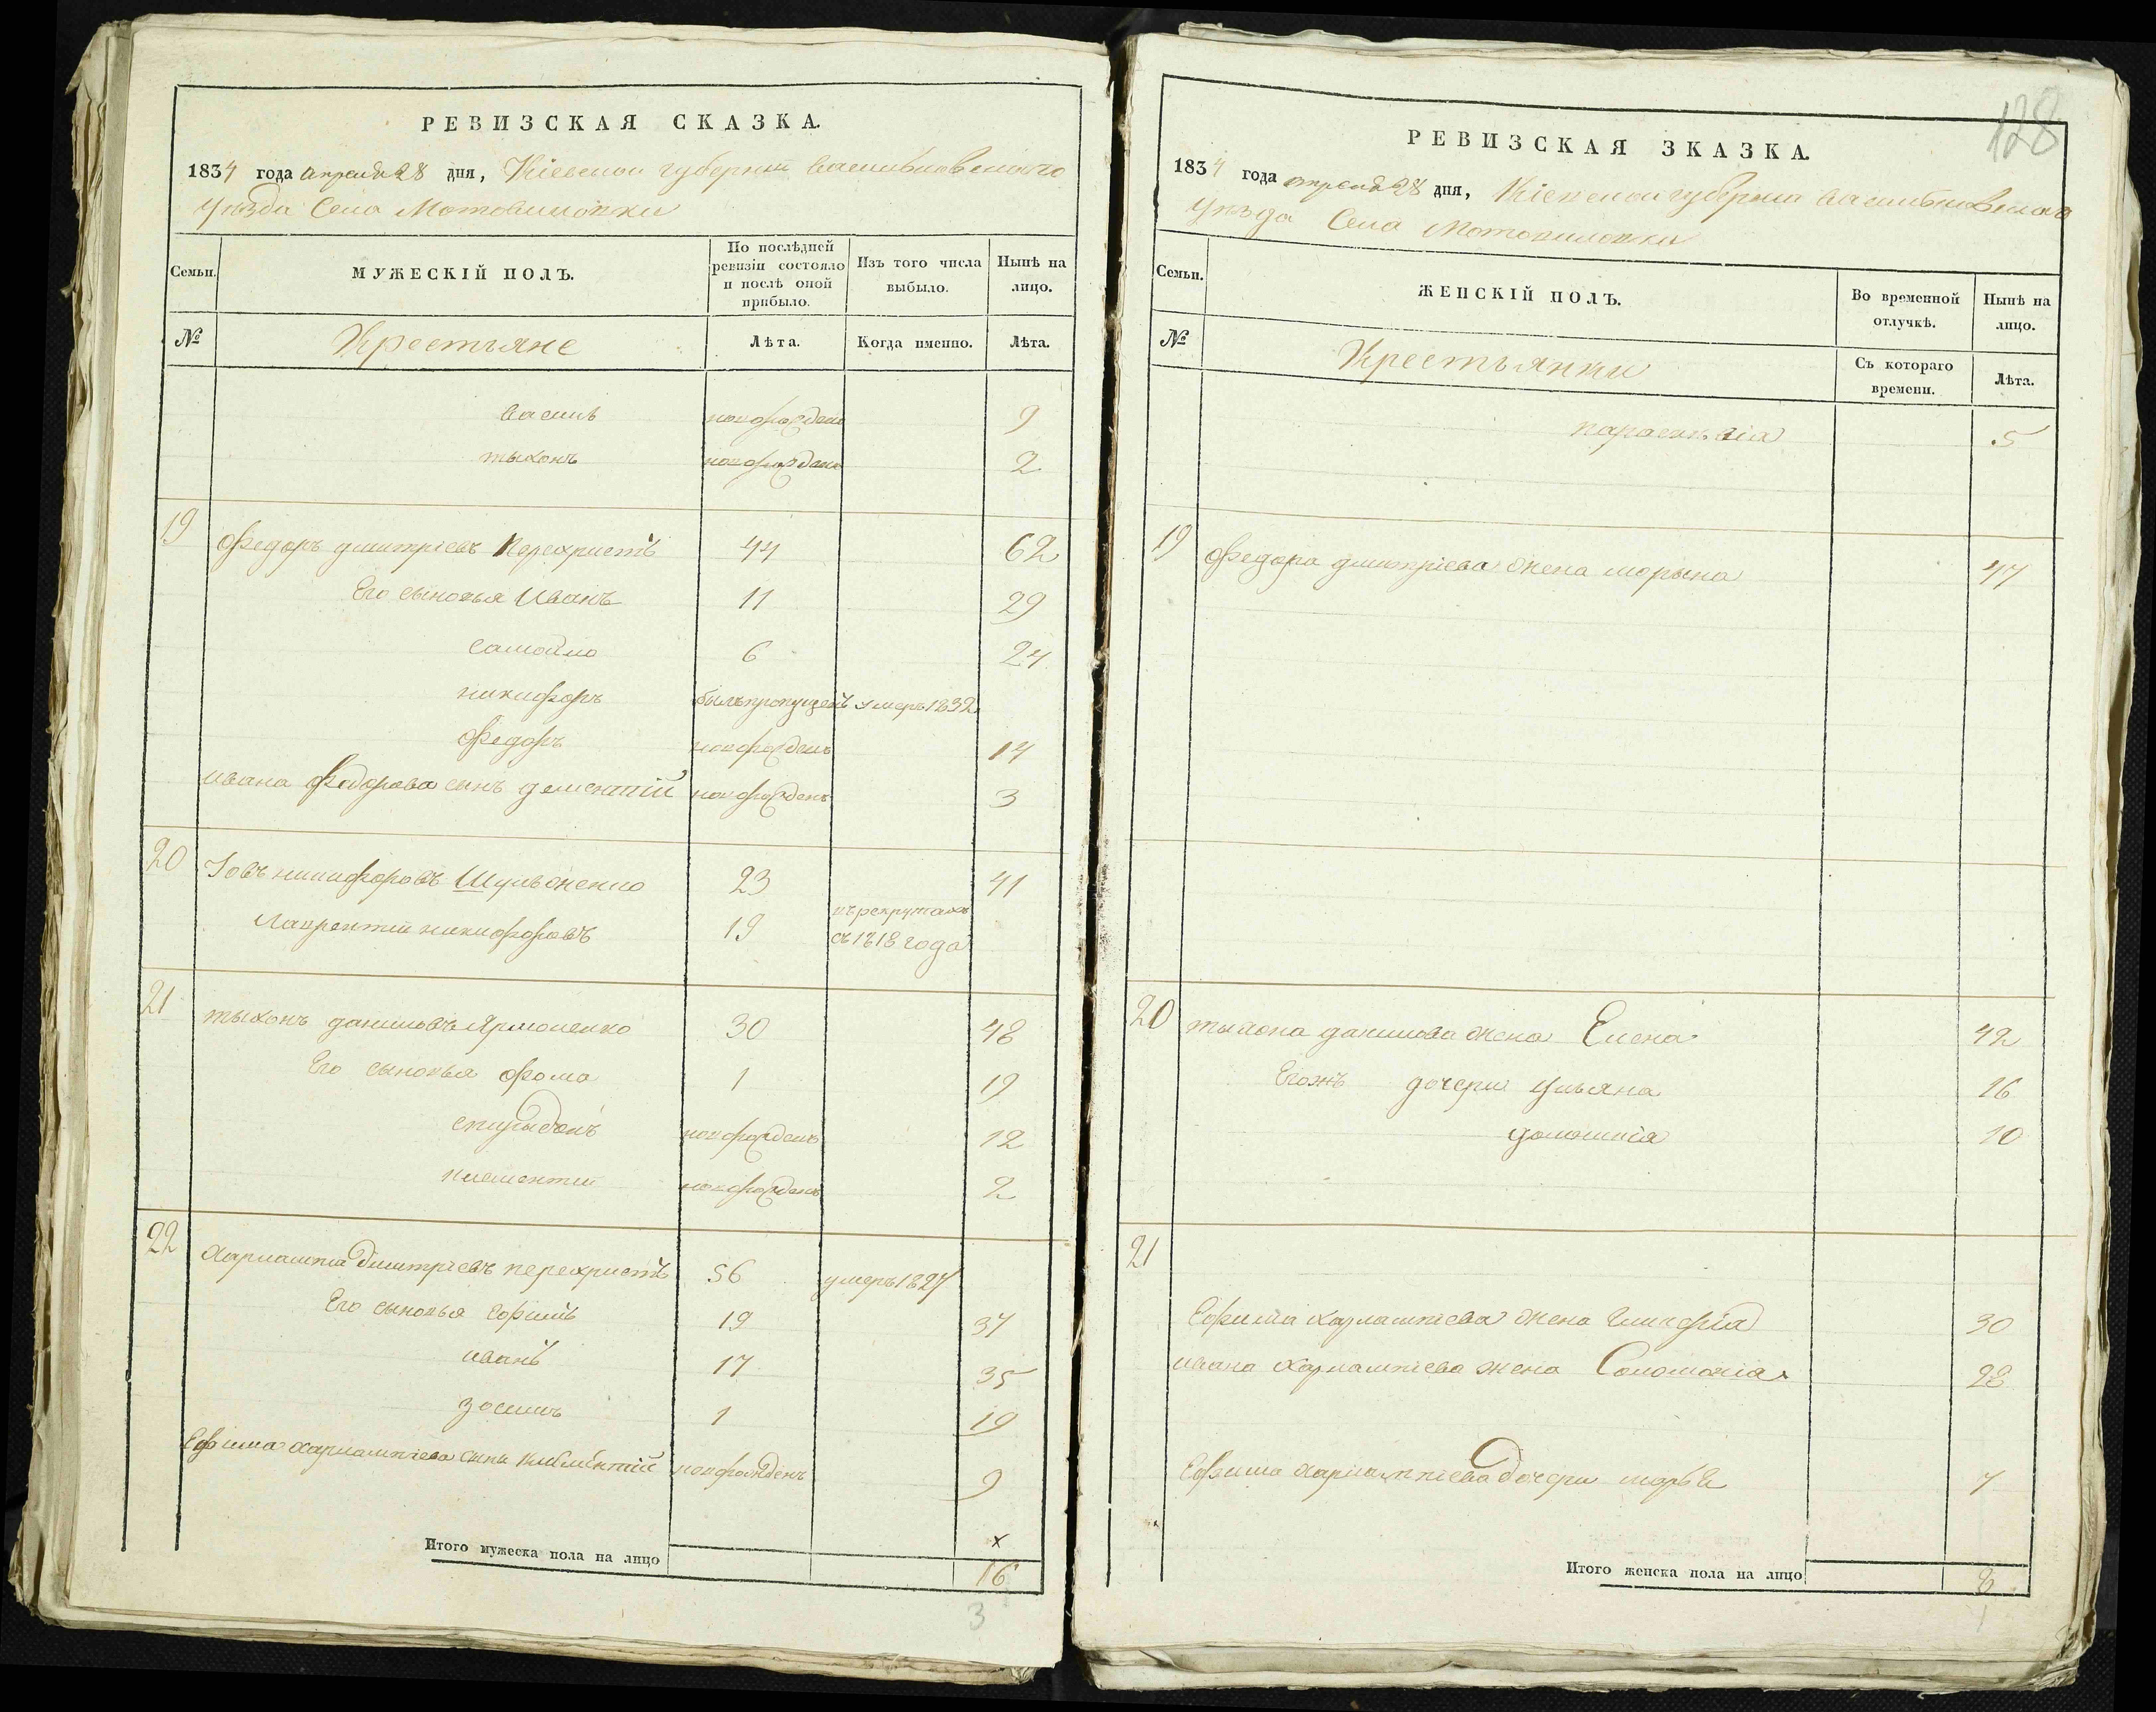 РЕВИЗСКАЯ СКАЗКА.
1834 года апреля 28 дня, Кіевской губерніи Васильковского
уѣзда Села Мотовиловки
Семьи.
МУЖЕСКІЙ ПОЛЪ.
По послѣдней ревизіи состояло и послѣ оной прибыло.
Изъ того числа выбыло.
Нынѣ на лицо.
№ Крестьяне Лѣта. Когда именно. Лѣта.
Василь новорожденъ 9
тыхонъ новорожденъ 2
19 Федоръ дмитріевъ Перехристъ 44 62
Его сыновья Иванъ 11 29
самойло 6 24
никифоръ былъ пропущенъ умеръ 1832
Федоръ новорожденъ 14
ивана Федорова сынъ дементій новорожденъ 3
20 Іовъ никифоровъ Шульженко 23 41
Лаврентий никифоровъ 19 въ рекрутахъ
съ 1818 года
21 тыхонъ даниловъ Ярмоленко 30 48
Его сыновья фома 1 19
спиридонъ новорожденъ 12
климентий новорожденъ 2
22 Харлампій дмитріевъ перехристъ 56 умеръ 1827
Его сыновья Ефимъ 19 37
иванъ 17 35
зосимъ 1 19
Ефима харлампіева сынъ климентій новорожденъ 9
х
Итого мужеска пола на лицо 16
3
128
РЕВИЗСКАЯ ЗКАЗКА.
1834 года апреля 28 дня, Кіевской губерніи Васильковского
уѣзда Села Мотовиловки
Семьи.
ЖЕНСКІЙ ПОЛЪ.
Во временной отлучкѣ.
Нынѣ на лицо.
№ Крестьянки Съ котораго времени. Лѣта.
параскевія 5
19 Федора дмитріева жена марына 47
20 тыхона данилова жена Елена 42
Егожъ дочери ульяна 16
домникія 10
21
Ефима харлампіева жена гликерія 30
ивана харлампіева жена Соломонія 28
Ефима харлампіева дочери марья 7
Итого женска пола на лицо 8
1